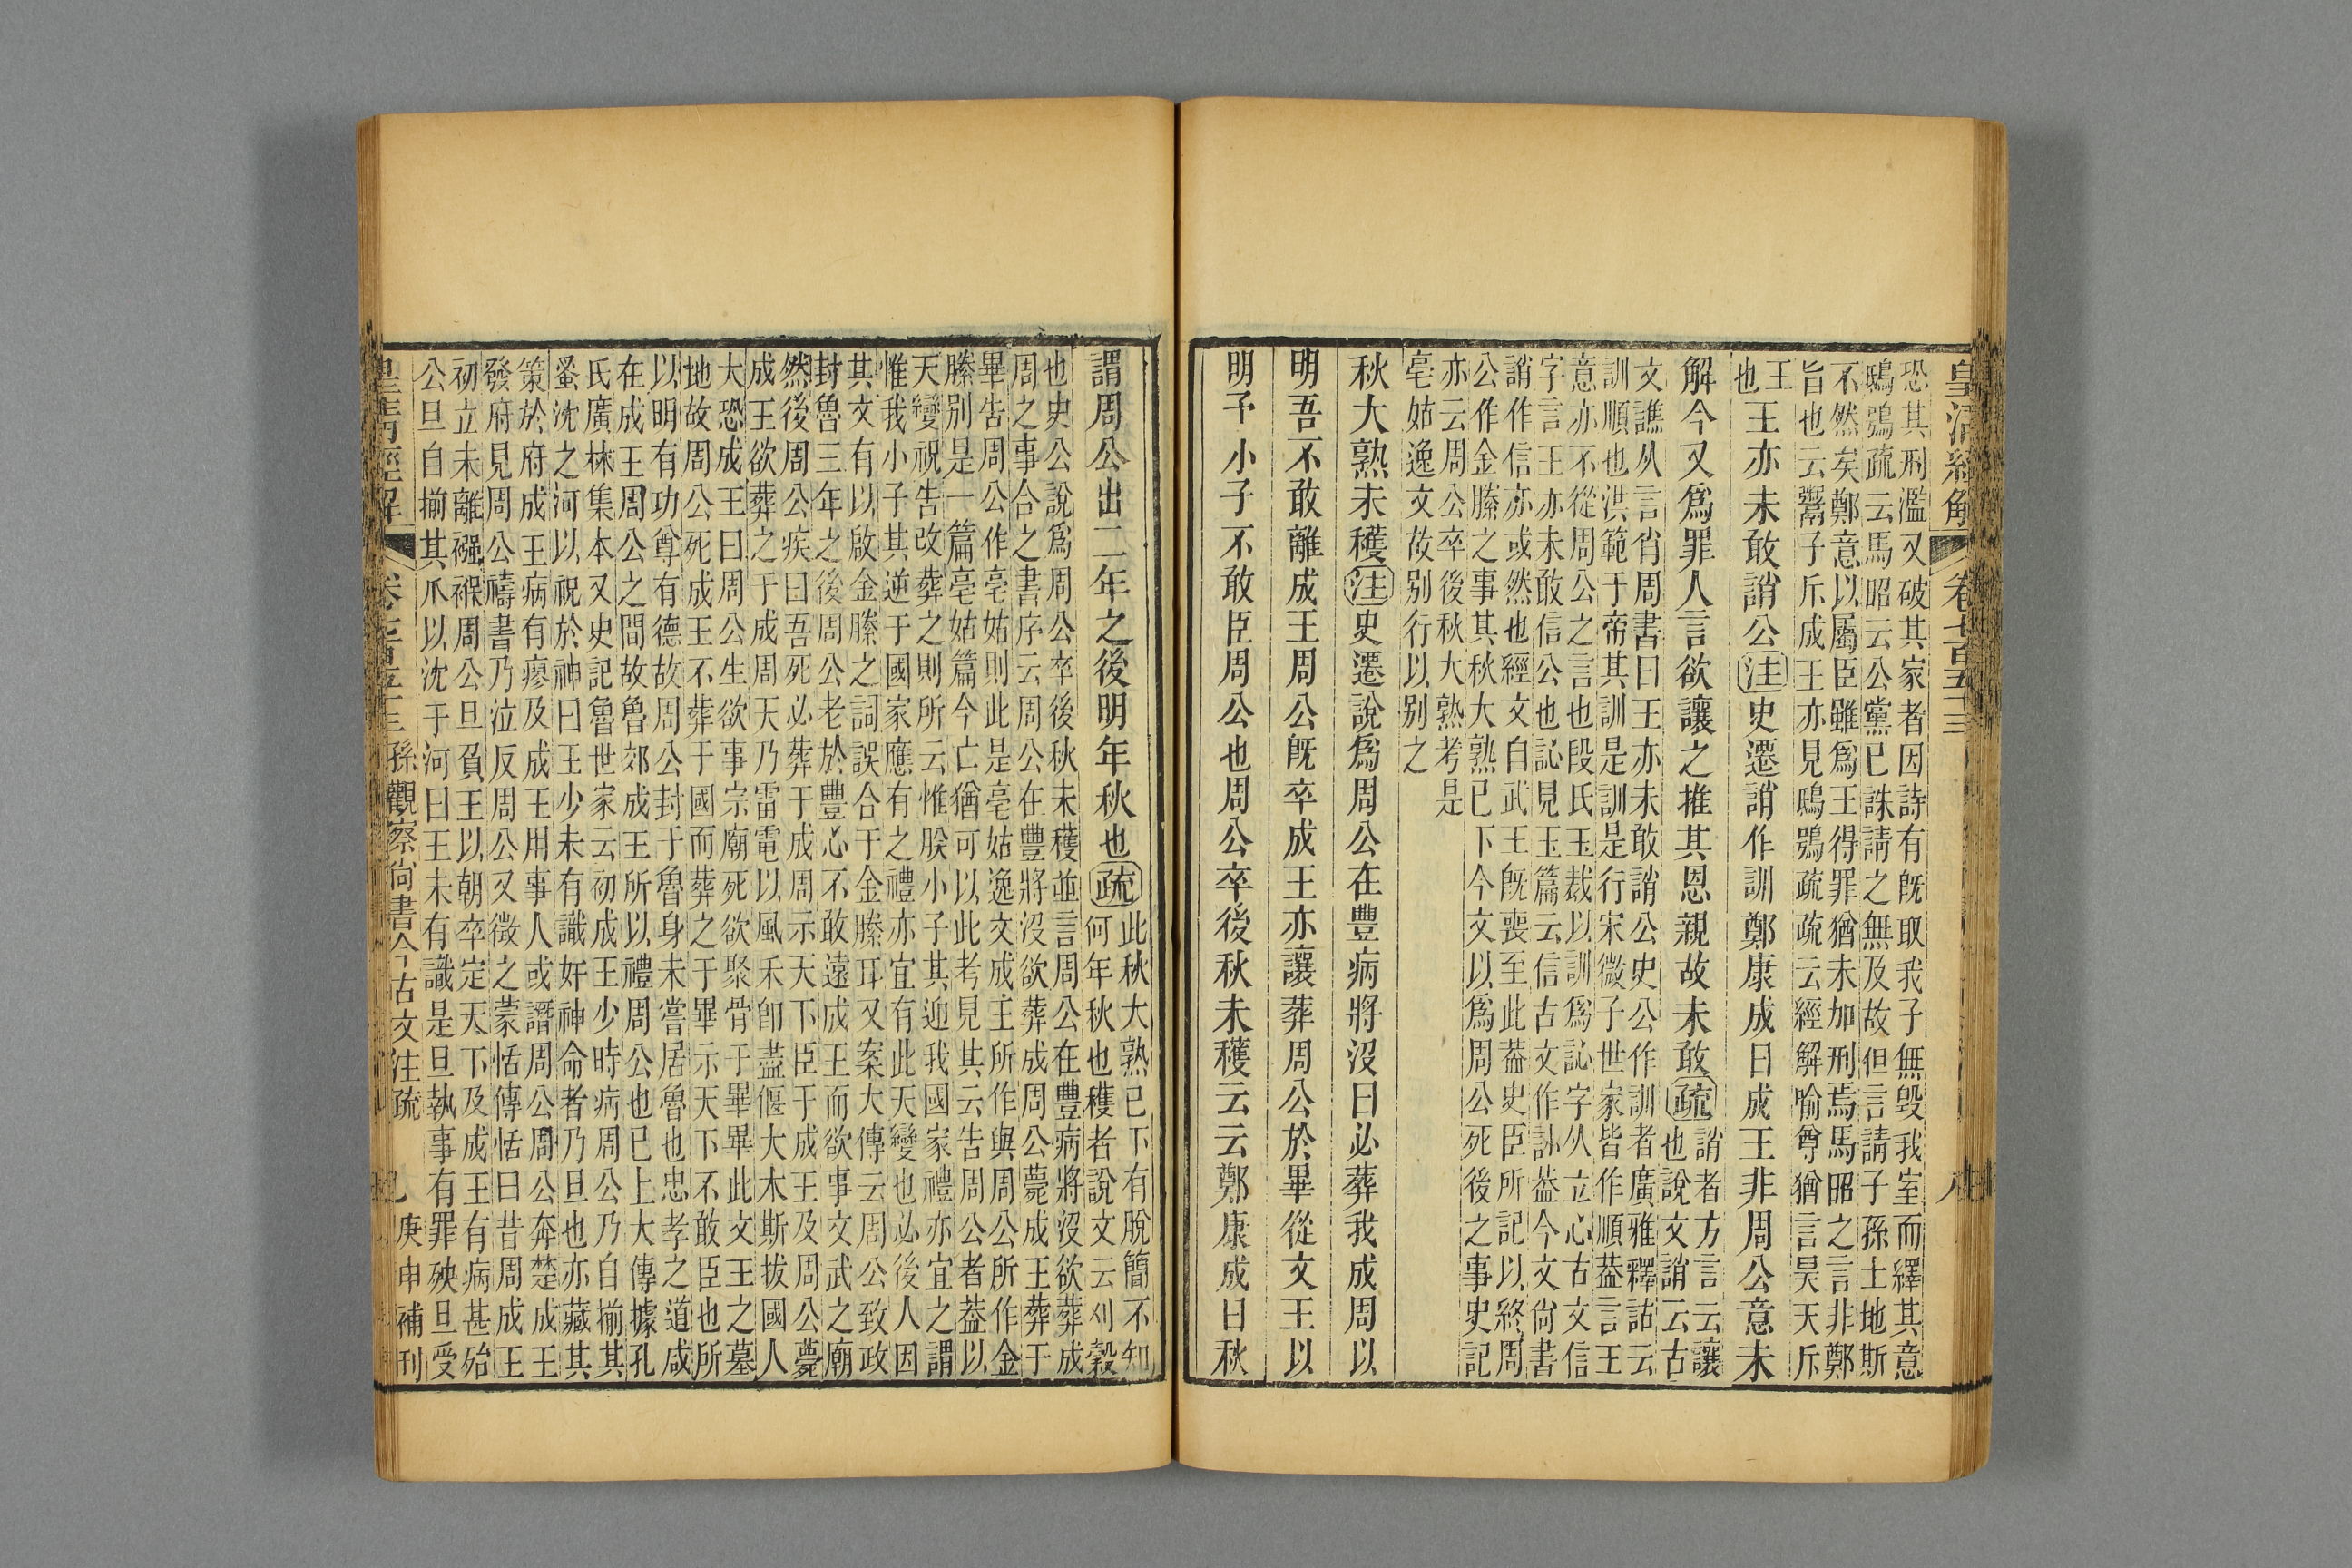 皇清經解 卷七百五十三 八
恐其刑濫又破其家者因詩有旣取我子無毁我室而繹其意
鴟鴞疏云馬昭云公黨已誅請之無及故但言請子孫土地斯
不然矣鄭意以屬臣雖爲王得罪猶未加刑焉馬昭之言非鄭
旨也云鬻子斥成王亦見鴟鴞疏疏云經解喻尊猶言昊天斥
王
也
王亦未敢誚公注史遷誚作訓鄭康成曰成王非周公意未
解今又爲罪人言欲讓之推其恩親故未敢疏
誚者方言云讓
也說文誚云古
文譙从言肖周書曰王亦未敢誚公史公作訓者廣雅釋詁云
訓順也洪範于帝其訓是訓是行宋微子世家皆作順葢言王
意亦不從周公之言也段氏玉裁以訓爲訫字从立心古文信
字言王亦未敢信公也訫見玉篇云信古文作訫葢今文尙書
誚作信亦或然也經文自武王旣喪至此葢史臣所記以終周
公作金縢之事其秋大熟已下今文以爲周公死後之事史記
亦云周公卒後秋大熟考是
亳姑逸文故别行以别之
秋大熟未穫注史遷說爲周公在豐病將沒曰必葬我成周以
明吾不敢離成王周公旣卒成王亦讓葬周公於畢從文王以
明予小子不敢臣周公也周公卒後秋未穫云云鄭康成曰秋
謂周公出二年之後明年秋也疏
此秋大熟已下有脫簡不知
何年秋也穫者說文云刈穀
也史公說爲周公卒後秋未穫並言周公在豐病將沒欲葬成
周之事合之書序云周公在豐將沒欲葬成周公薨成王葬于
畢告周公作亳姑則此是亳姑逸文成王所作與周公所作金
縢别是一篇亳姑篇今亡猶可以此考見其云告周公者葢以
天變祝告改葬之則所云惟朕小子其迎我國家禮亦宜之謂
惟我小子其逆于國家應有之禮亦宜有此天變也必後人因
其文有以啟金縢之詞誤合于金縢耳又案大傳云周公致政
封魯三年之後周公老於豐心不敢遠成王而欲事文武之廟
然後周公疾曰吾死必葬于成周示天下臣于成王及周公薨
成王欲葬之于成周天乃雷電以風禾卽盡偃大木斯拔國人
大恐成王曰周公生欲事宗廟死欲聚骨于畢畢此文王之墓
地故周公死成王不葬于國而葬之于畢示天下不敢臣也所
以明有功尊有德故周公封于魯身未嘗居魯也忠孝之道咸
在成王周公之間故魯郊成王所以禮周公也已上大傳據孔
氏廣林集本又史記魯世家云初成王少時病周公乃自揃其
蚤沈之河以祝於神曰王少未有識奸神命者乃旦也亦藏其
策於府成王病有瘳及成王用事人或譖周公周公奔楚成王
發府見周公禱書乃泣反周公又徵之蒙恬傳恬曰昔周成王
初立未離襁褓周公旦負王以朝卒定天下及成王有病甚殆
公旦自揃其爪以沈于河曰王未有識是旦執事有罪殃旦受
皇淸經解 卷七百五十三 孫觀察尙書今古文注疏 九 庚申補刊